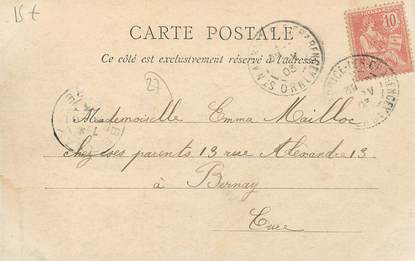 15 t
CARTE POSTALE
Ce côté est exclusivement réservé à l'adresse
10
27
Mademoiselle Emma Mailloc
chez ses parents 13 rue Alexandre 13
à Bernay
Eure